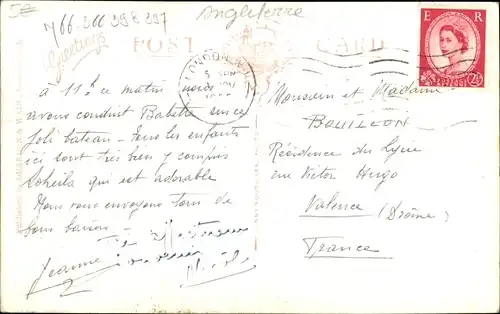 766 300 398 397
Angleterre
Greetings
POST CARD
E R
LONDON
à 11h ce matin nous
avons conduit Babette sur ce
joli bateau - Tous les enfants
ici sont très bien y compris
Soheila qui est adorable
Nous vous envoyons tous de
bons baisers -
Jeanne
Monsieur et Madame
BOUILLON
Résidence du Lycée
rue Victor Hugo
Valence (Drôme)
France